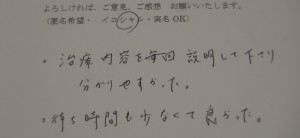 よろしければ、ご意見、ご感想 お願いいたします。
(匿名希望・ イニシャル・実名 OK)
・治療内容を毎回説明して下さり
分かりやすかった。
・待ち時間も少なくて良かった。